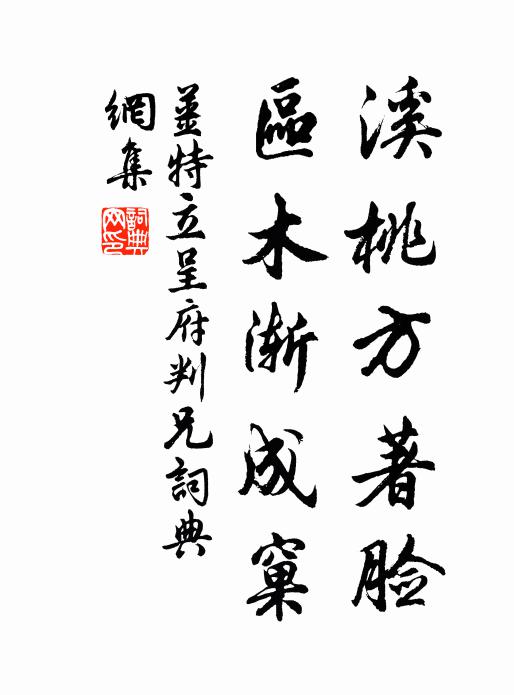 溪桃方著臉
區木漸成窠
姜特立呈府判兄詞典
網集
詞典
网印